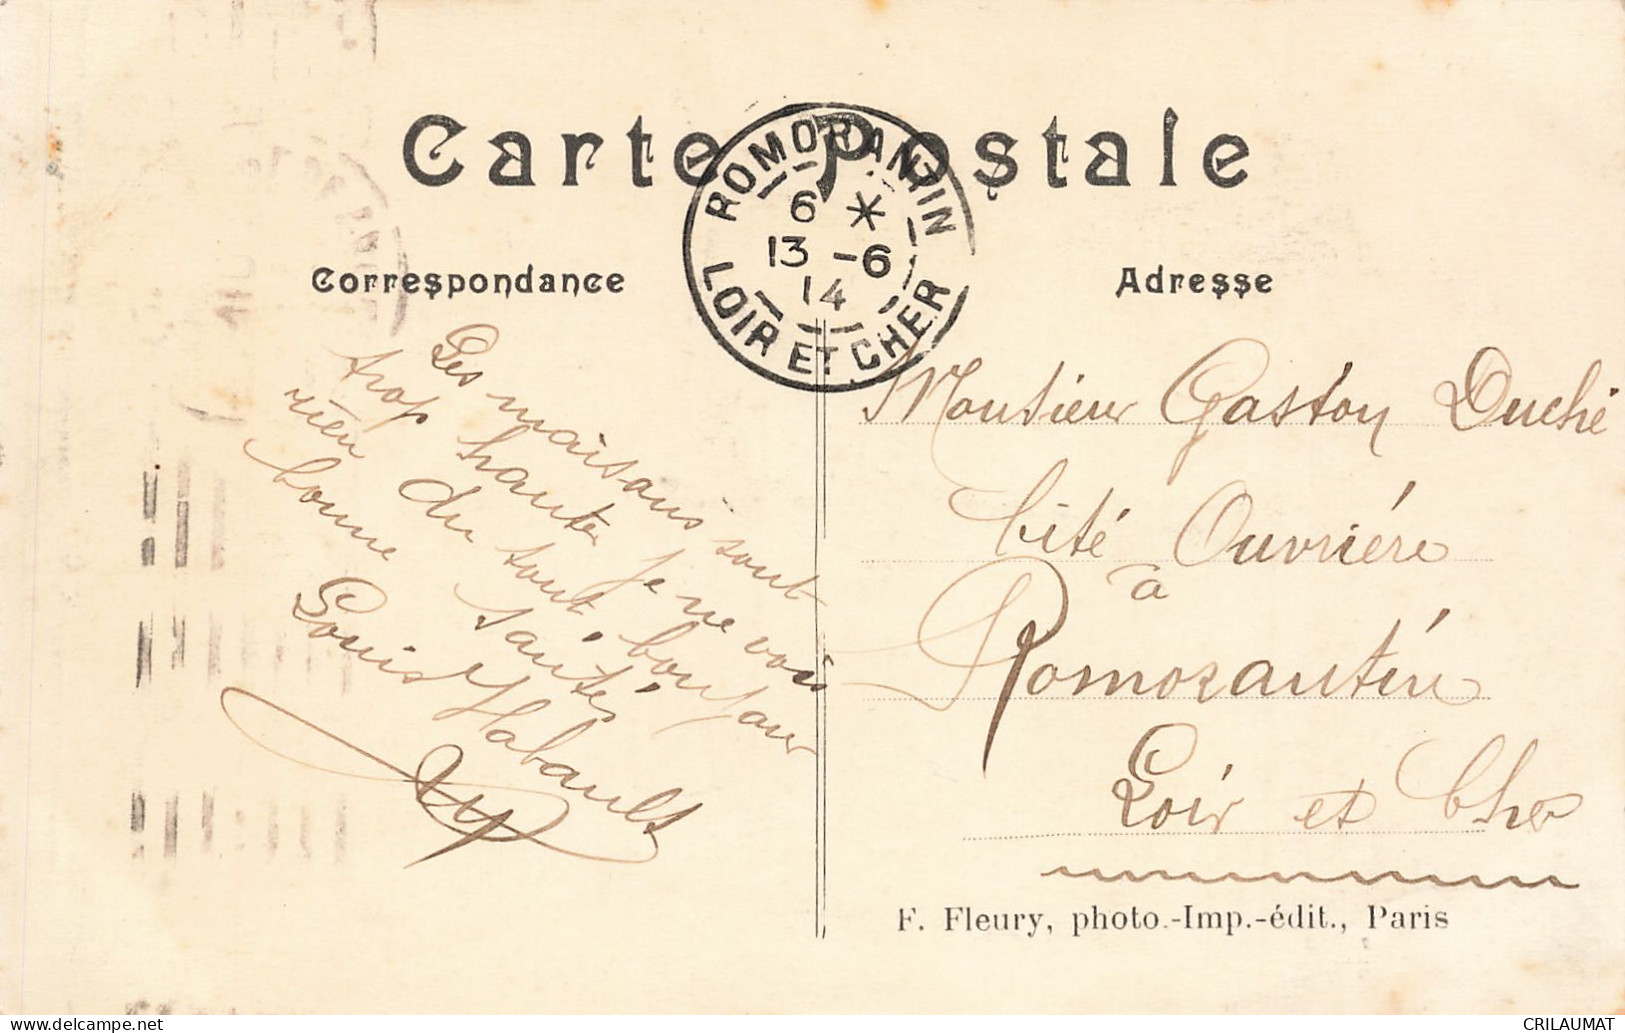 Carte Postale
ROMORANTIN
6 *
13 -6
14
LOIR ET CHER
Correspondance
Adresse
Les maisons sont
trop hautes je ne vois
rien du tout bonjour
bonne santés
Louis Habault
Monsieur Gaston Duché
Cité Ouvriére
a
Romorantin
Loir et Cher
F. Fleury, photo.-Imp.-édit., Paris
CRILAUMAT